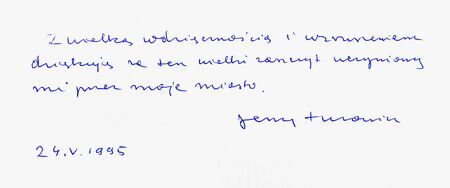 Z wielką wdzięcznością i wzruszeniem
dziękuję za ten wielki zaszczyt uczyniony
mi przez moje miasto.
Jerzy Turowicz
24.V.1995